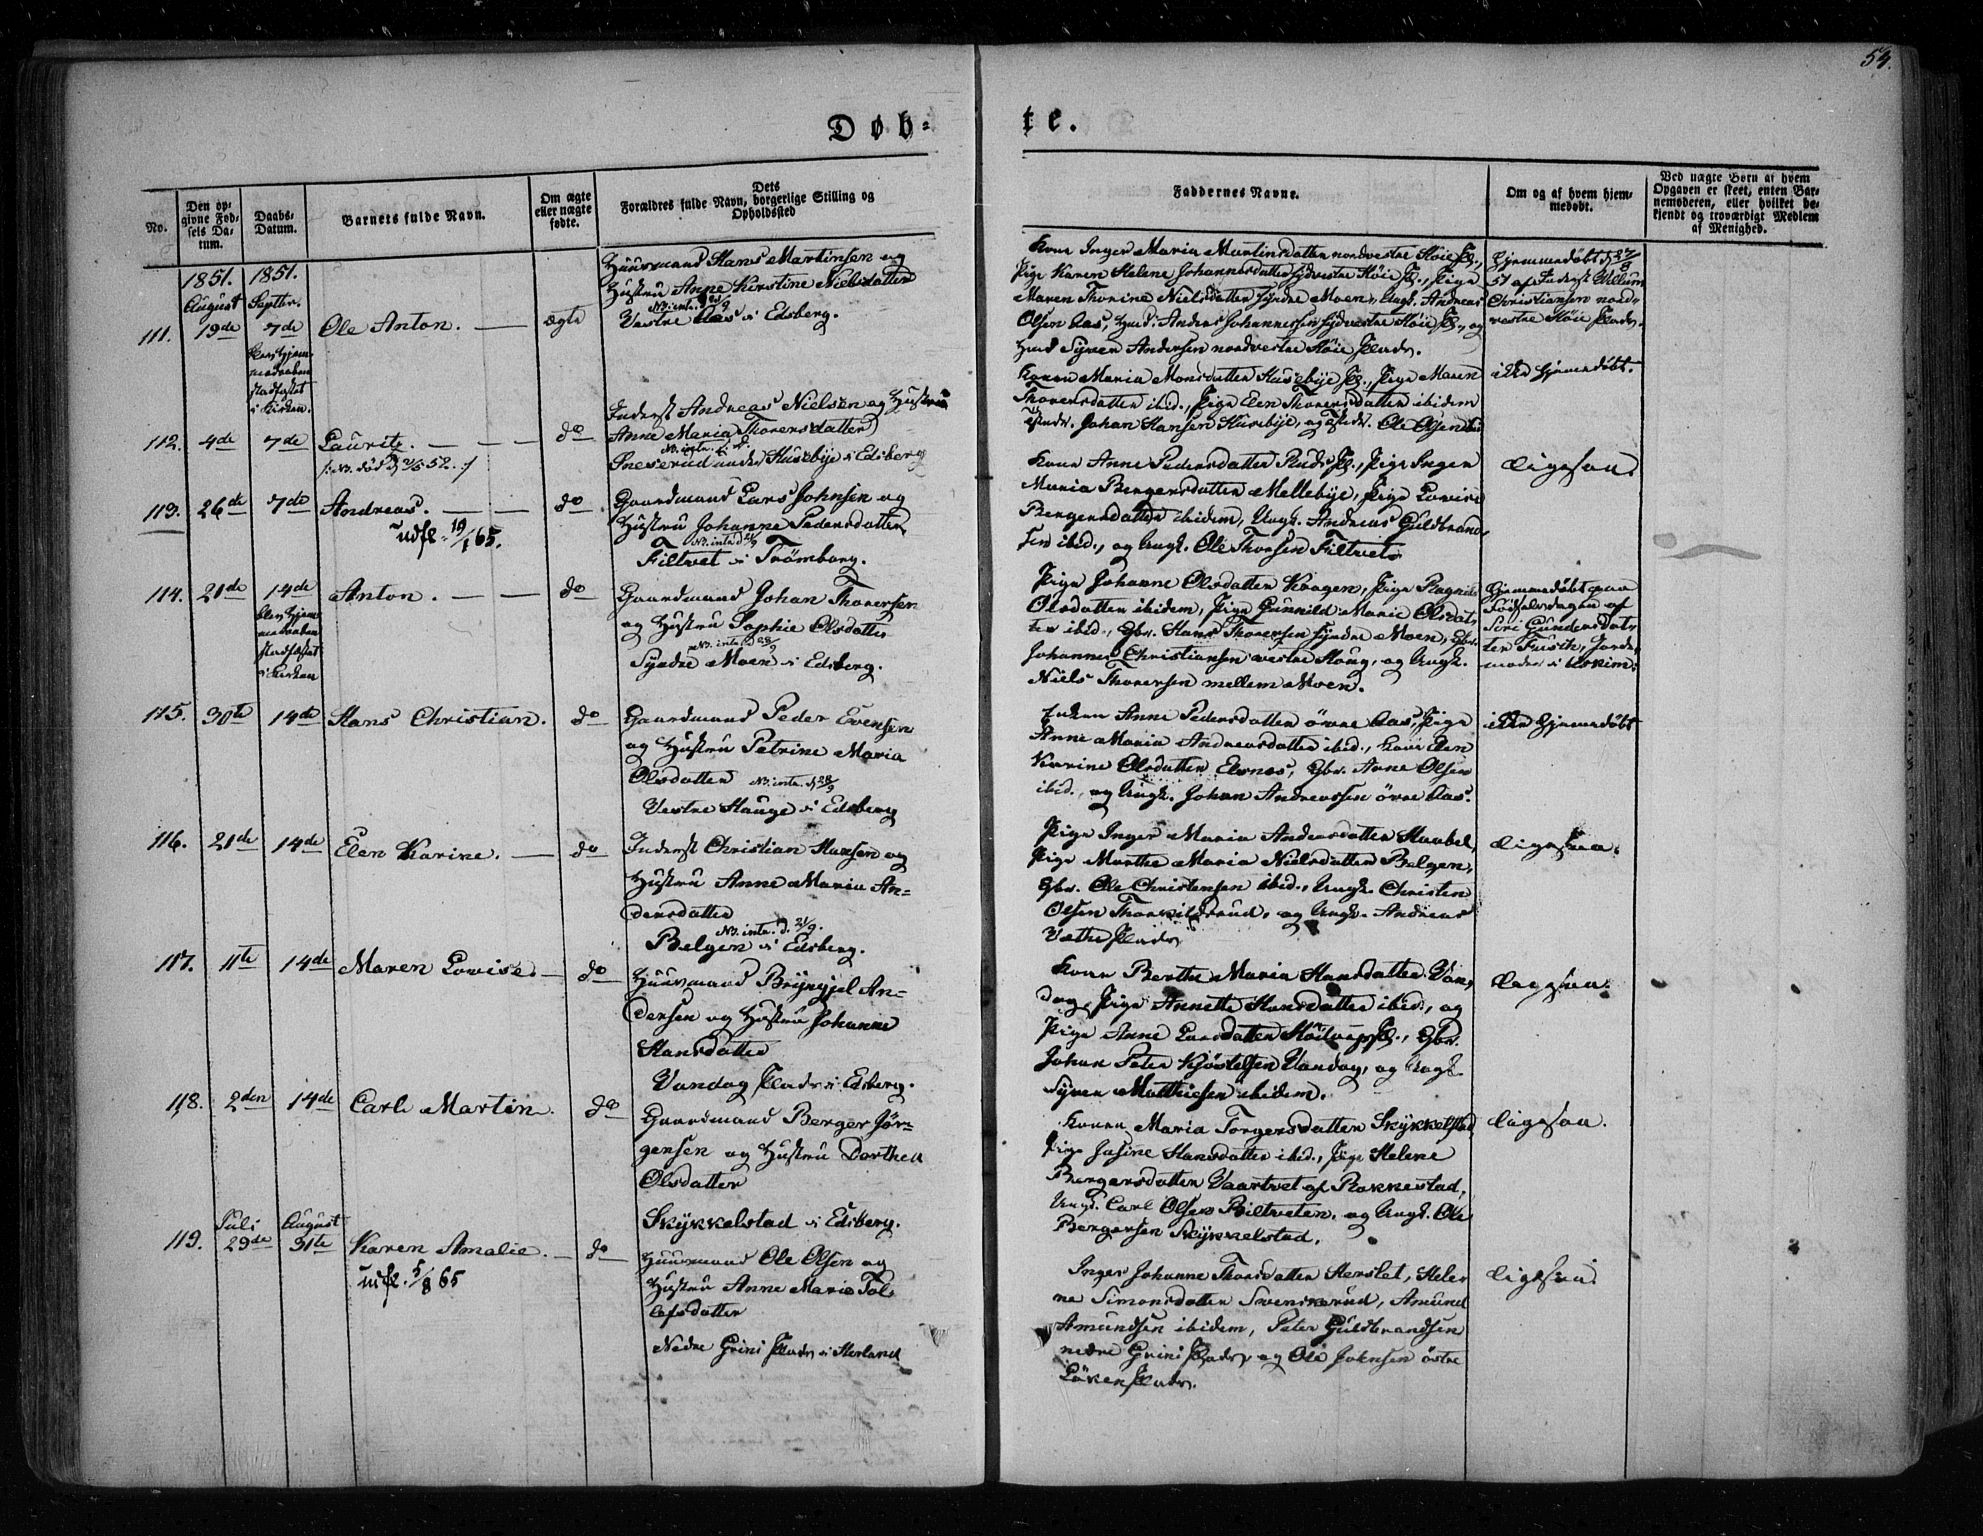 54.
Døb=
te.
No.
Den op=
givne Fød=
sels Da=
tum.
Daabs=
Datum.
Barnets fulde Navn.
Om ægte
eller uægte
fødte.
Dets
Forældres fulde Navn, borgerlige Stilling og
Opholdssted
Faddernes Navne.
Om og af hvem hjem=
medøbt.
Ved uægte Børn af hvem
Opgaven er skeet, enten Bar=
nemoderen, eller hvilket be=
kjendt og troværdigt Medlem
af Menighed.
1851. 1851.
August Septbr.
111. 19de 7de Ole Anton. — ægte
blev hjem=
medaaben
stadfæstet
i Kirken.
Huusmand Hans Martinsen og
Hustru Anne Kirstine Nielsdatter
Vestre Aas i Edsberg.
Kone Inger Maria Martinsdatter nordvestre Høie Pl.,
Pige Karen Helene Johannesdatter sydvestre Høie Pl., Pige
Maren Thorine Nielsdatter syndre Moen, Ungk. Andreas
Olsen Aas, Huusm. Anders Johannessen sydvestre Høie Pl., og
Huusm. Syver Andersen nordvestre Høie Plads.
Hjemmedøbt d. 27/8
51 af Inderst Willum
Christiansen nord=
vestre Høie Plads.
112. 4de 7de Lauritz. — — — do
/: NB. død 52. :/
Inderst Andreas Nielsen og Hustru
Anne Maria Thorersdatter
Sneserud under Husebye i Edsberg
Konen Maria Monsdatter Husebye Pl., Pige Maren
Thorersdatter ibid., Pige Elen Thorersdatter ibidem
Johan Hansen Husebye, og Ole Olsen ibid
ikke hjemmedøbt.
113. 26de 7de Andreas. — — do
udfl. 19/1 65.
Gaardmand Lars Johnsen og
Hustru Johanne Pedersdatter
Filtvet i Trømborg.
Kone Anne Pedersdatter Ruds Pl., Pige Inger
Maria Bergersdatter Mellebye, Pige Lovise
Bergersdatter ibidem, Ungk. Andreas Guldbrand=
sen ibid., og Ungk. Ole Thorsen Filtvet.
Ligesaa.
114. 21de 14de Anton. — — do
blev hjem=
medaaben
stadfæstet
i Kirken
Gaardmand Johan Thorersen
og Hustru Sophie Olsdatter
NB. intr. d. 28/9
Syndre Moen i Edsberg.
Pige Johanne Olsdatter Kragen, Pige Ragnild
Olsdatter ibidem, Pige Gunnild Marie Olsdat=
ter ibid., Gbr. Hans Thorersen syndre Moen, Gbr.
Johannes Christiansen vestre Houg, og Ungk.
Niels Thorersen mellem Moen.
Hjemmedøbt paa
Fødselsdagen af
Siri Gundersdat=
ter Fusik, Jorde=
moder i Askim.
115. 30te 14de Hans Christian. do
Gaardmand Peder Evensen
og Hustru Petrine Maria
Olsdatter NB. intr. d. 28/9
Vestre Hauge i Edsberg
Enken Anne Pedersdatter øvre Aas, Pige
Anne Maria Andreasdatter ibid., Kone Elen
Karine Olsdatter Elvnes, Gbr. Arne Olsen
ibid., og Ungk. Johan Andreassen øvre Aas.
ikke hjemmedøbt
116. 21de 14de Elen Karine. — do
Inderst Christian Hansen og
Hustru Anne Maria An=
dersdatter
NB. intr. d. 21/9.
Belgen i Edsberg.
Pige Inger Maria Andersdatter Haabel,
Pige Marthe Maria Nielsdatter Belgen,
Gbr. Ole Christensen ibid., Ungk. Christen
Olsen Thorkildsrud, og Ungk. Andreas
Plads
Ligesaa.
117. 11te 14de Maren Lovise — do
Huusmand Brynyjel An=
dersen og Hustru Johanne
Hansdatter
Vandog Plads i Edsberg.
Kone Berthe Maria Hansdatter Van=
dog, Pige Annette Hansdatter ibid., og
Pige Anne Larsdatter Pl., Gbr.
Johan Peter Kjøstelsen Vandog, og Ungk.
Syver Matthiesen ibidem.
Ligesaa.
118. 2den 14de Carl Martin. do
Gaardmand Berger Jør=
gensen og Hustru Dorthea
Olsdatter
Skykkelstad i Edsberg.
Konen Maria Torgersdatter Skykkelstad
Pige Josine Hansdatter ibid., Pige Helene
Bergersdatter Vaartvet af Rakkestad,
Ungk. Carl Olsen Biltveten, og Ungk. Ole
Bergersen Skykkelstad.
Ligesaa.
Juli August
119. 29de 31te Karen Amalie. — do
udfl. 5/8 65
Huusmand Ole Olsen og
Hustru Anne Marie Tol=
lefsdatter
Nedre Grini Plads i Herland
Inger Johanne Thorsdatter Herslet, Hele=
ne Simonsdatter Svenskerud, Amund
Amundsen ibidem, Peter Guldbrandsen
nedre Grini Plads og Ole Johnsen østre
Løken Plads.
Ligesaa.